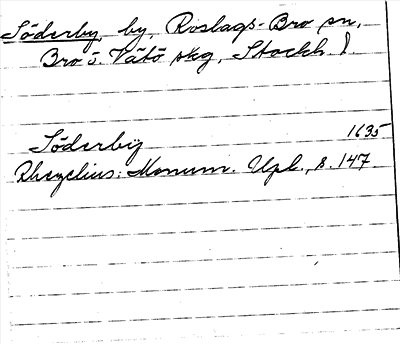 Söderby by, Roslags-Bro sn,
Bro o. Vätö skg, Stockh. l.
Söderbÿ 1635
Rhezelius: Monum. Upl., s. 147.